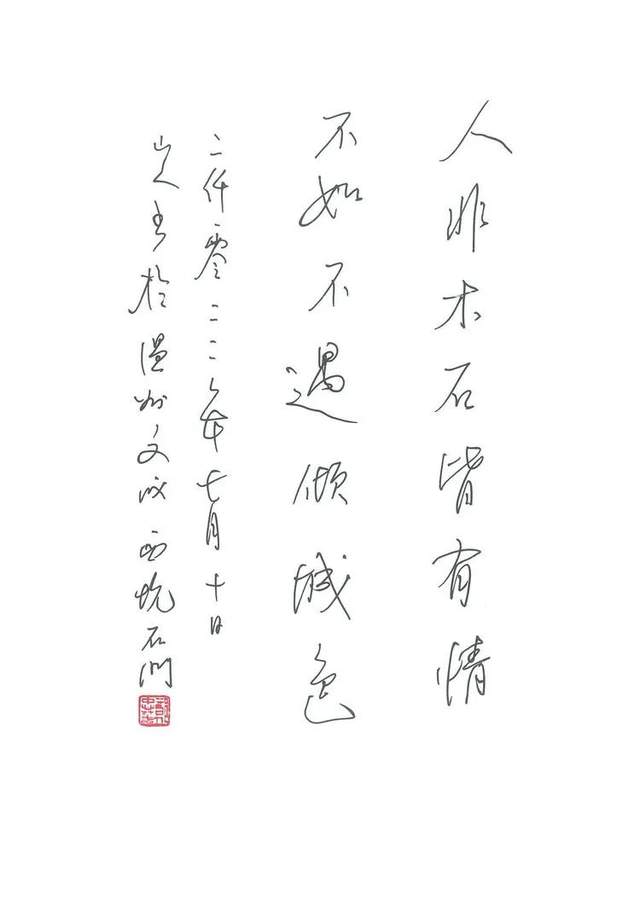 人非木石皆有情
不如不遇倾城色
二仟零二二年七月十日
书於温州文成西坑石门